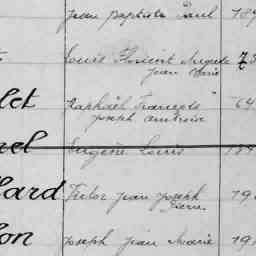 Jean Baptiste Paul 189
Louis Florent Auguste 73
Jean Marie
let Raphaël François " 64
Joseph Ambroise
nel Eugène Louis 189
lard Victor Jean Joseph 19
Pierre
lon Joseph Jean Marie 191